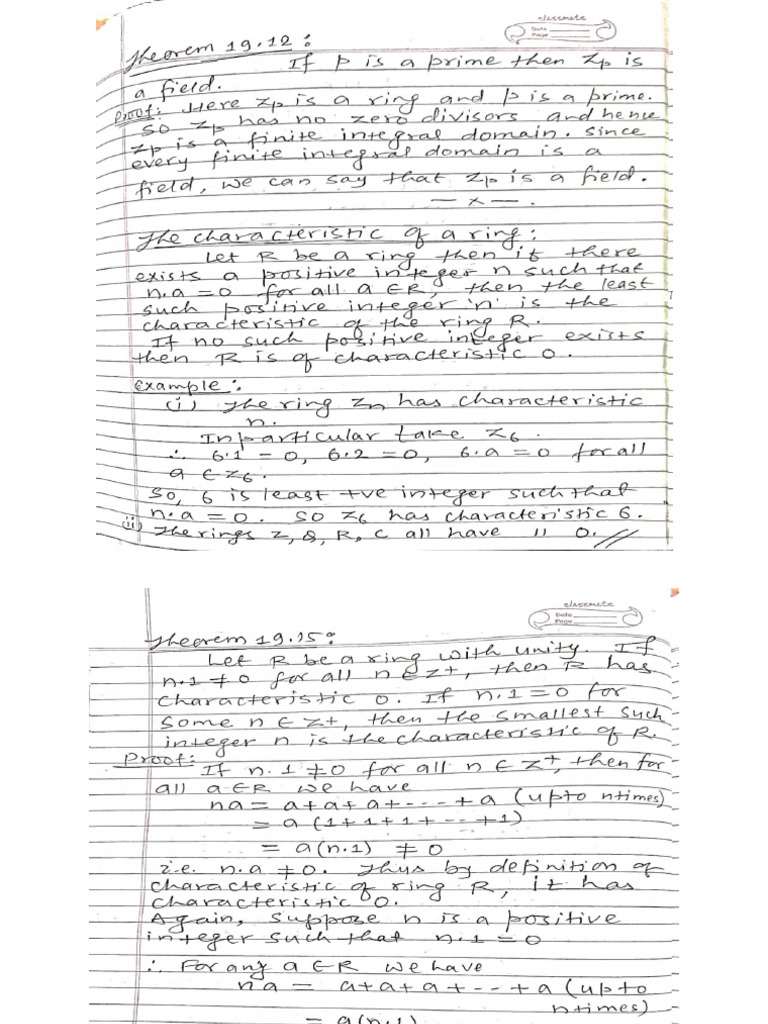 classmate
Date
Page
Theorem 19.12:
If p is a prime then Zp is
a field.
Proof: Here Zp is a ring and p is a prime.
So Zp has no zero divisors and hence
Zp is a finite integral domain. Since
every finite integral domain is a
field, we can say that Zp is a field.
— x — .
The characteristic of a ring:
Let R be a ring then if there
exists a positive integer n such that
n.a = 0 for all a ∈ R, then the least
such positive integer 'n' is the
characteristic of the ring R.
If no such positive integer exists
then R is of characteristic 0.
Example:
(i) The ring Zn has characteristic
n.
In particular take Z6.
∴ 6.1 = 0, 6.2 = 0, 6.a = 0 for all
a ∈ Z6.
So, 6 is least +ve integer such that
n.a = 0. So Z6 has characteristic 6.
ii) The rings Z, Q, R, C all have 11 0.//
classmate
Date
Page
Theorem 19.15:
Let R be a ring with unity. If
n.1 ≠ 0 for all n ∈ Z+, then R has
characteristic 0. If n.1 = 0 for
some n ∈ Z+, then the smallest such
integer n is the characteristic of R.
Proof: If n.1 ≠ 0 for all n ∈ Z+, then for
all a ∈ R we have
na = a+a+a+---+a (upto n times)
= a (1+1+1+--+1)
= a(n.1) ≠ 0
i.e. n.a ≠ 0. Thus by definition of
characteristic of ring R, it has
characteristic 0.
Again, suppose n is a positive
integer such that n.1 = 0
∴ For any a ∈ R we have
na = a+a+a+--+a (upto
n times)
= a(n.1)